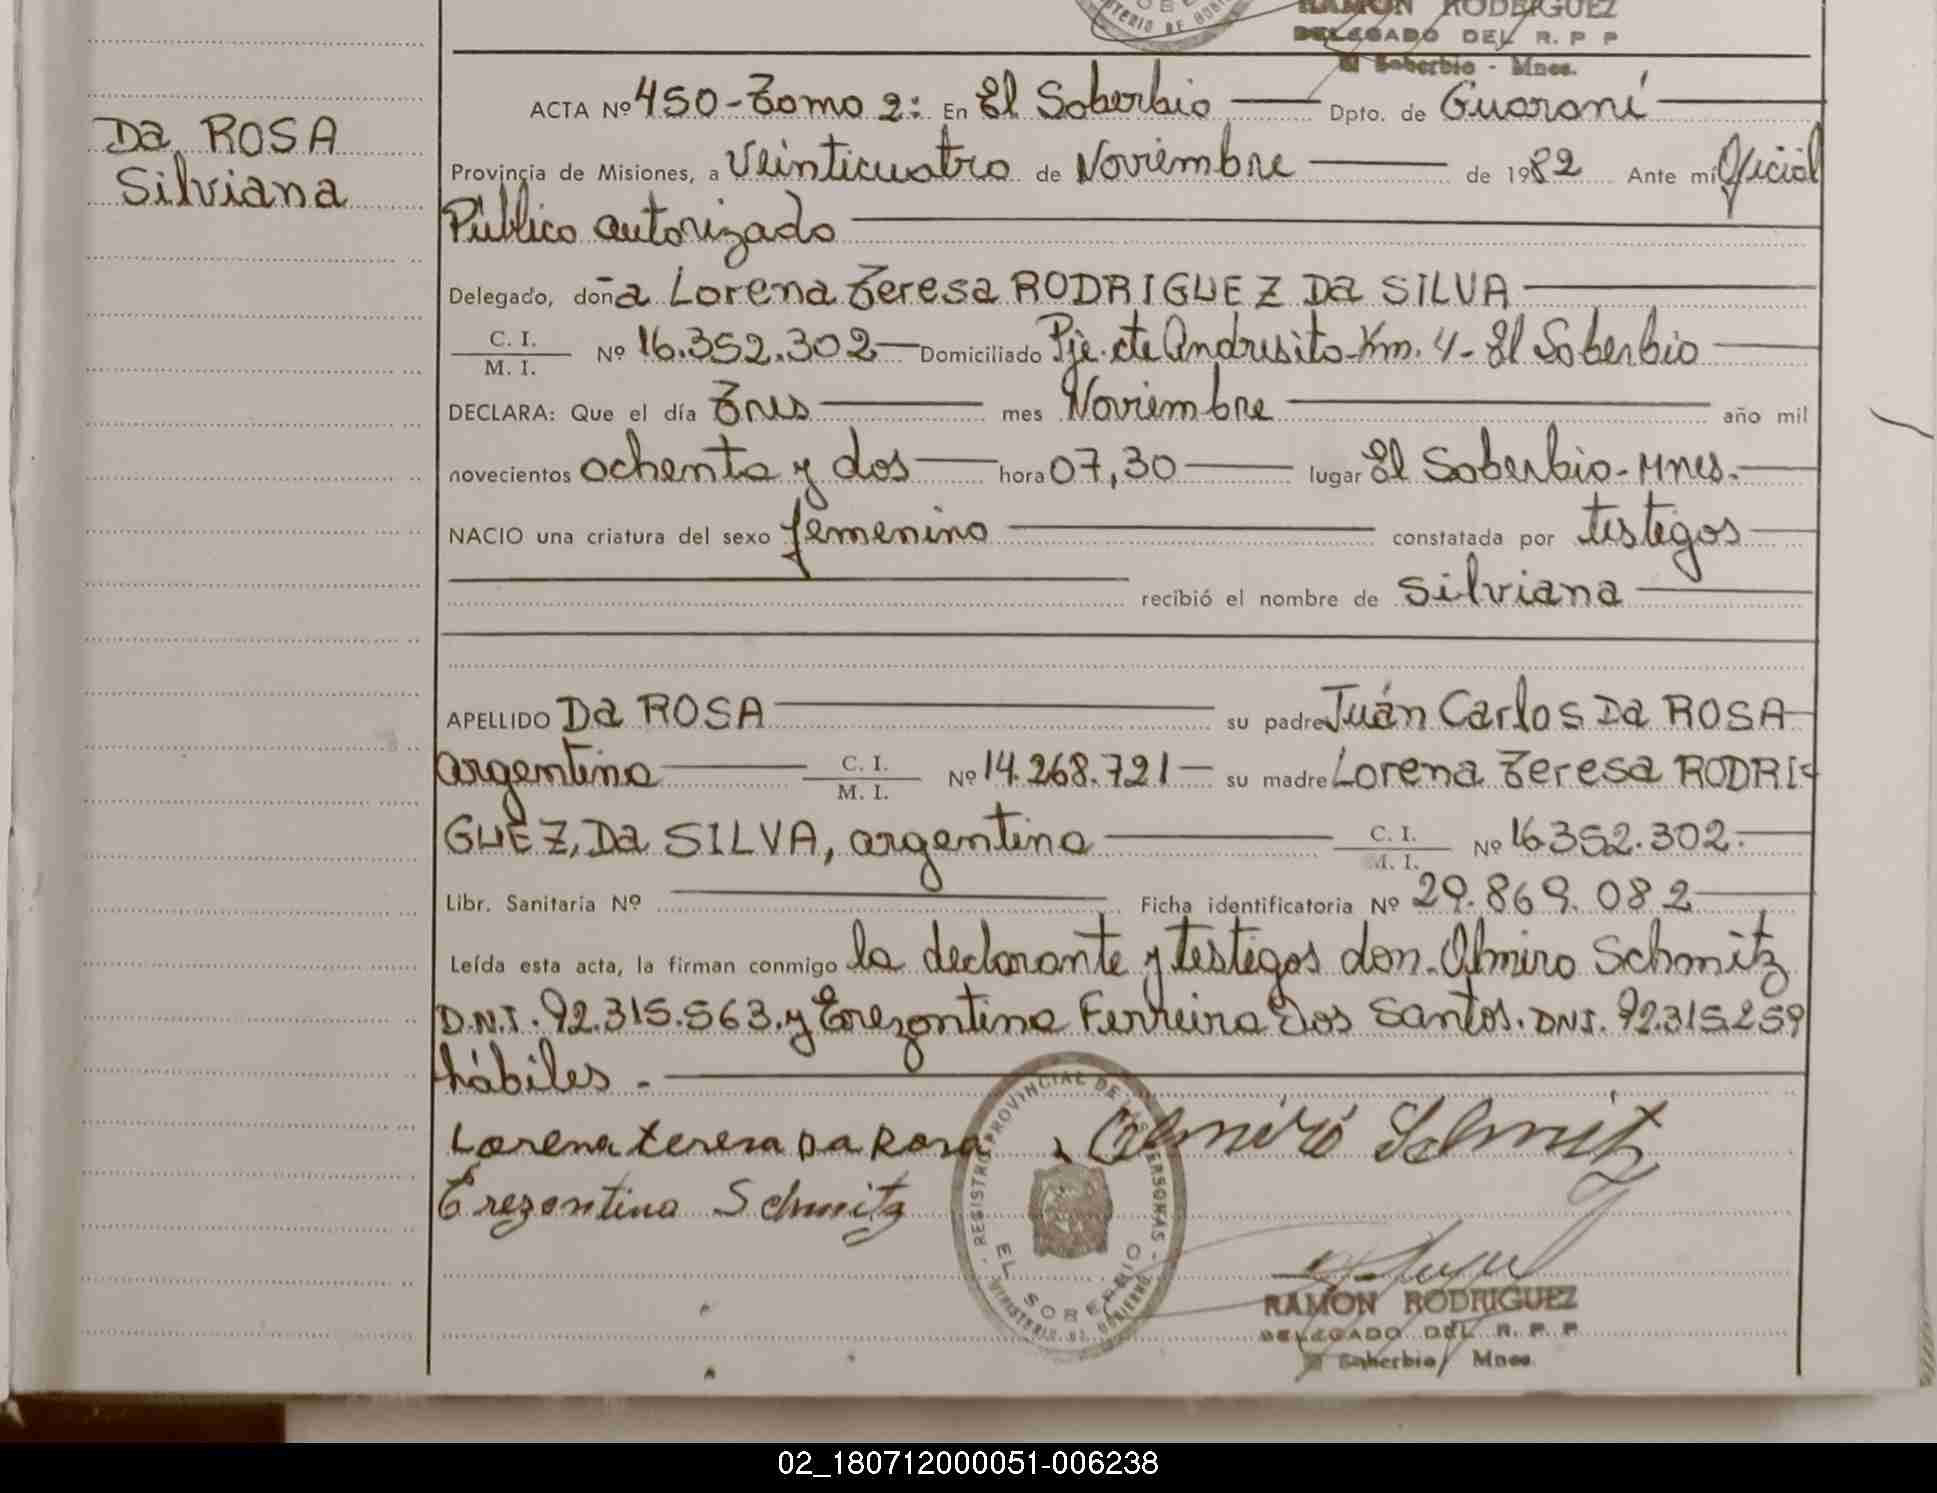 RAMON RODRIGUEZ
DELEGADO DEL R. P P
El Soberbio - Mnes.
Da ROSA
Silviana
ACTA Nº 450 - Tomo 2: En El Soberbio Dpto. de Guaraní
Provincia de Misiones, a Veinticuatro de Noviembre de 1982 Ante mi Oficial
Público autorizado
Delegado, doña Lorena Teresa RODRIGUEZ Da SILVA
C. I.
M. I. Nº 16.352.302 Domiciliado Pje. cte Andresito Km. 4 - El Soberbio
DECLARA: Que el día Tres mes Noviembre año mil
novecientos ochenta y dos hora 07,30 lugar El Soberbio - Mnes.
NACIO una criatura del sexo femenino constatada por testigos
recibió el nombre de Silviana
APELLIDO Da ROSA su padre Juán Carlos Da ROSA
argentino C. I. M. I. Nº 14.268.721 su madre Lorena Teresa RODRI
GUEZ, Da SILVA, argentina C. I. M. I. Nº 16.352.302.
Libr. Sanitaria Nº Ficha identificatoria Nº 29.869.082
Leída esta acta, la firman conmigo la declarante y testigos don. Olmiro Schmitz
D.N.I. 92.315.563. y Erezontina Ferreira Dos Santos. DNI. 92.315.259
hábiles. -
Lorena teresa Da Rosa, Olmiro Schmitz
Erezontina Schmitz
REGISTRO PROVINCIAL DE LAS PERSONAS
EL SOBERBIO
MINISTERIO DE GOBIERNO
RAMON RODRIGUEZ
DELEGADO DEL R. P. P
El Soberbio Mnes.
02_180712000051-006238